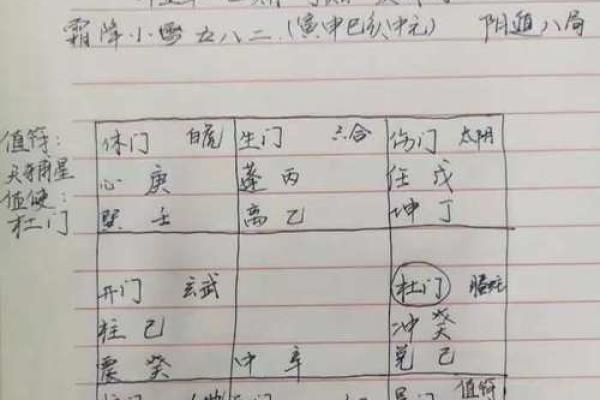 霜降小雪五八二(寅申巳亥中元) 阴遁八局
值符:
天辅星
值使:
杜门
休门 白虎 生门 六合 伤门 太阴
心 庚 蓬 丙 任 戊
巽 壬 离 乙 坤 丁
开门 玄武 杜门 螣蛇
柱 己 冲 癸
震 癸 中 辛 兑 己
值符